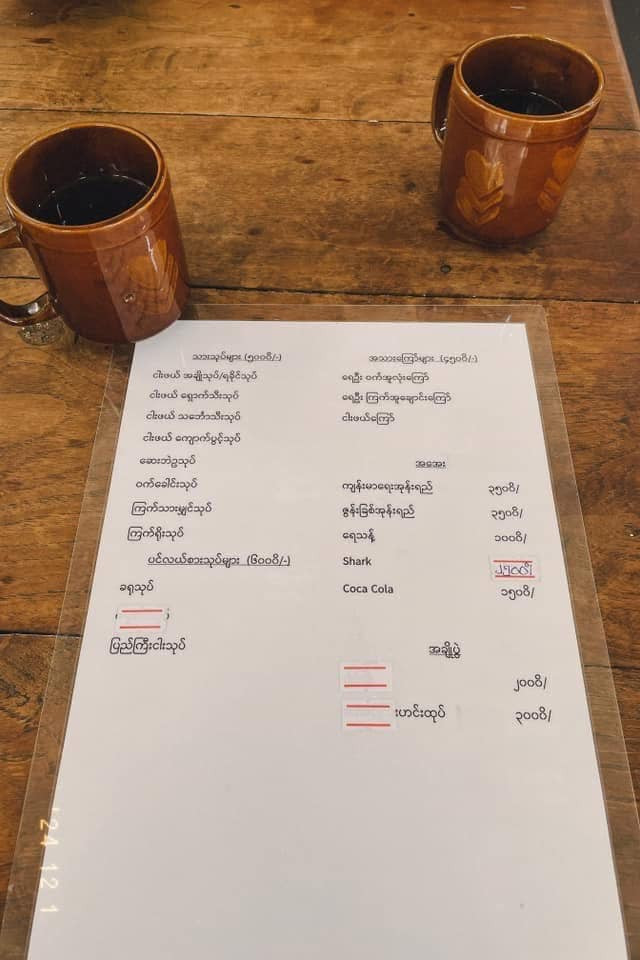 သားသုပ်များ (၅၀၀၀ိ/-)
ငါးဖယ် အချိုသုပ်/ရခိုင်သုပ်
ငါးဖယ် ရှောက်သီးသုပ်
ငါးဖယ် သင်္ဘောသီးသုပ်
ငါးဖယ် ကျောက်ပွင့်သုပ်
ဆေးဘဲဥသုပ်
ဝက်ခေါင်းသုပ်
ကြက်သားမျှင်သုပ်
ကြက်ရိုးသုပ်
ပင်လယ်စားသုပ်များ (၆၀၀၀ိ/-)
ခရုသုပ်
ပြည်ကြီးငါးသုပ်
အသားကြော်များ (၄၅၀၀ိ/-)
ရေဦး ဝက်အူလုံးကြော်
ရေဦး ကြက်အူချောင်းကြော်
ငါးဖယ်ကြော်
အအေး
ကျန်းမာရေးအုန်းရည် ၃၅၀၀ိ/
ဇွန်းခြစ်အုန်းရည် ၃၅၀၀ိ/
ရေသန့် ၁၀၀၀ိ/
Shark ၂၅၀၀ိ/
Coca Cola ၁၅၀၀ိ/
အချိုပွဲ
၂၀၀၀ိ/
းဟင်းထုပ် ၃၀၀၀ိ/
'24 12 1